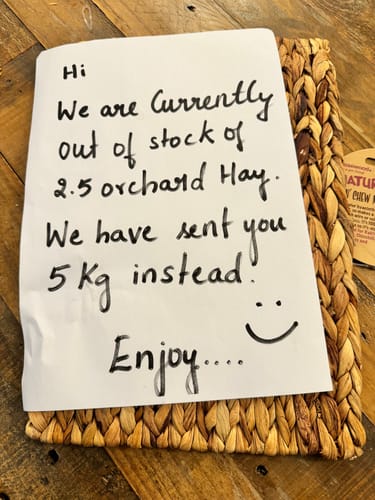 Hi
We are Currently
out of stock of
2.5 orchard Hay.
We have sent you
5 Kg instead.
Enjoy....
NATUR
CHEW